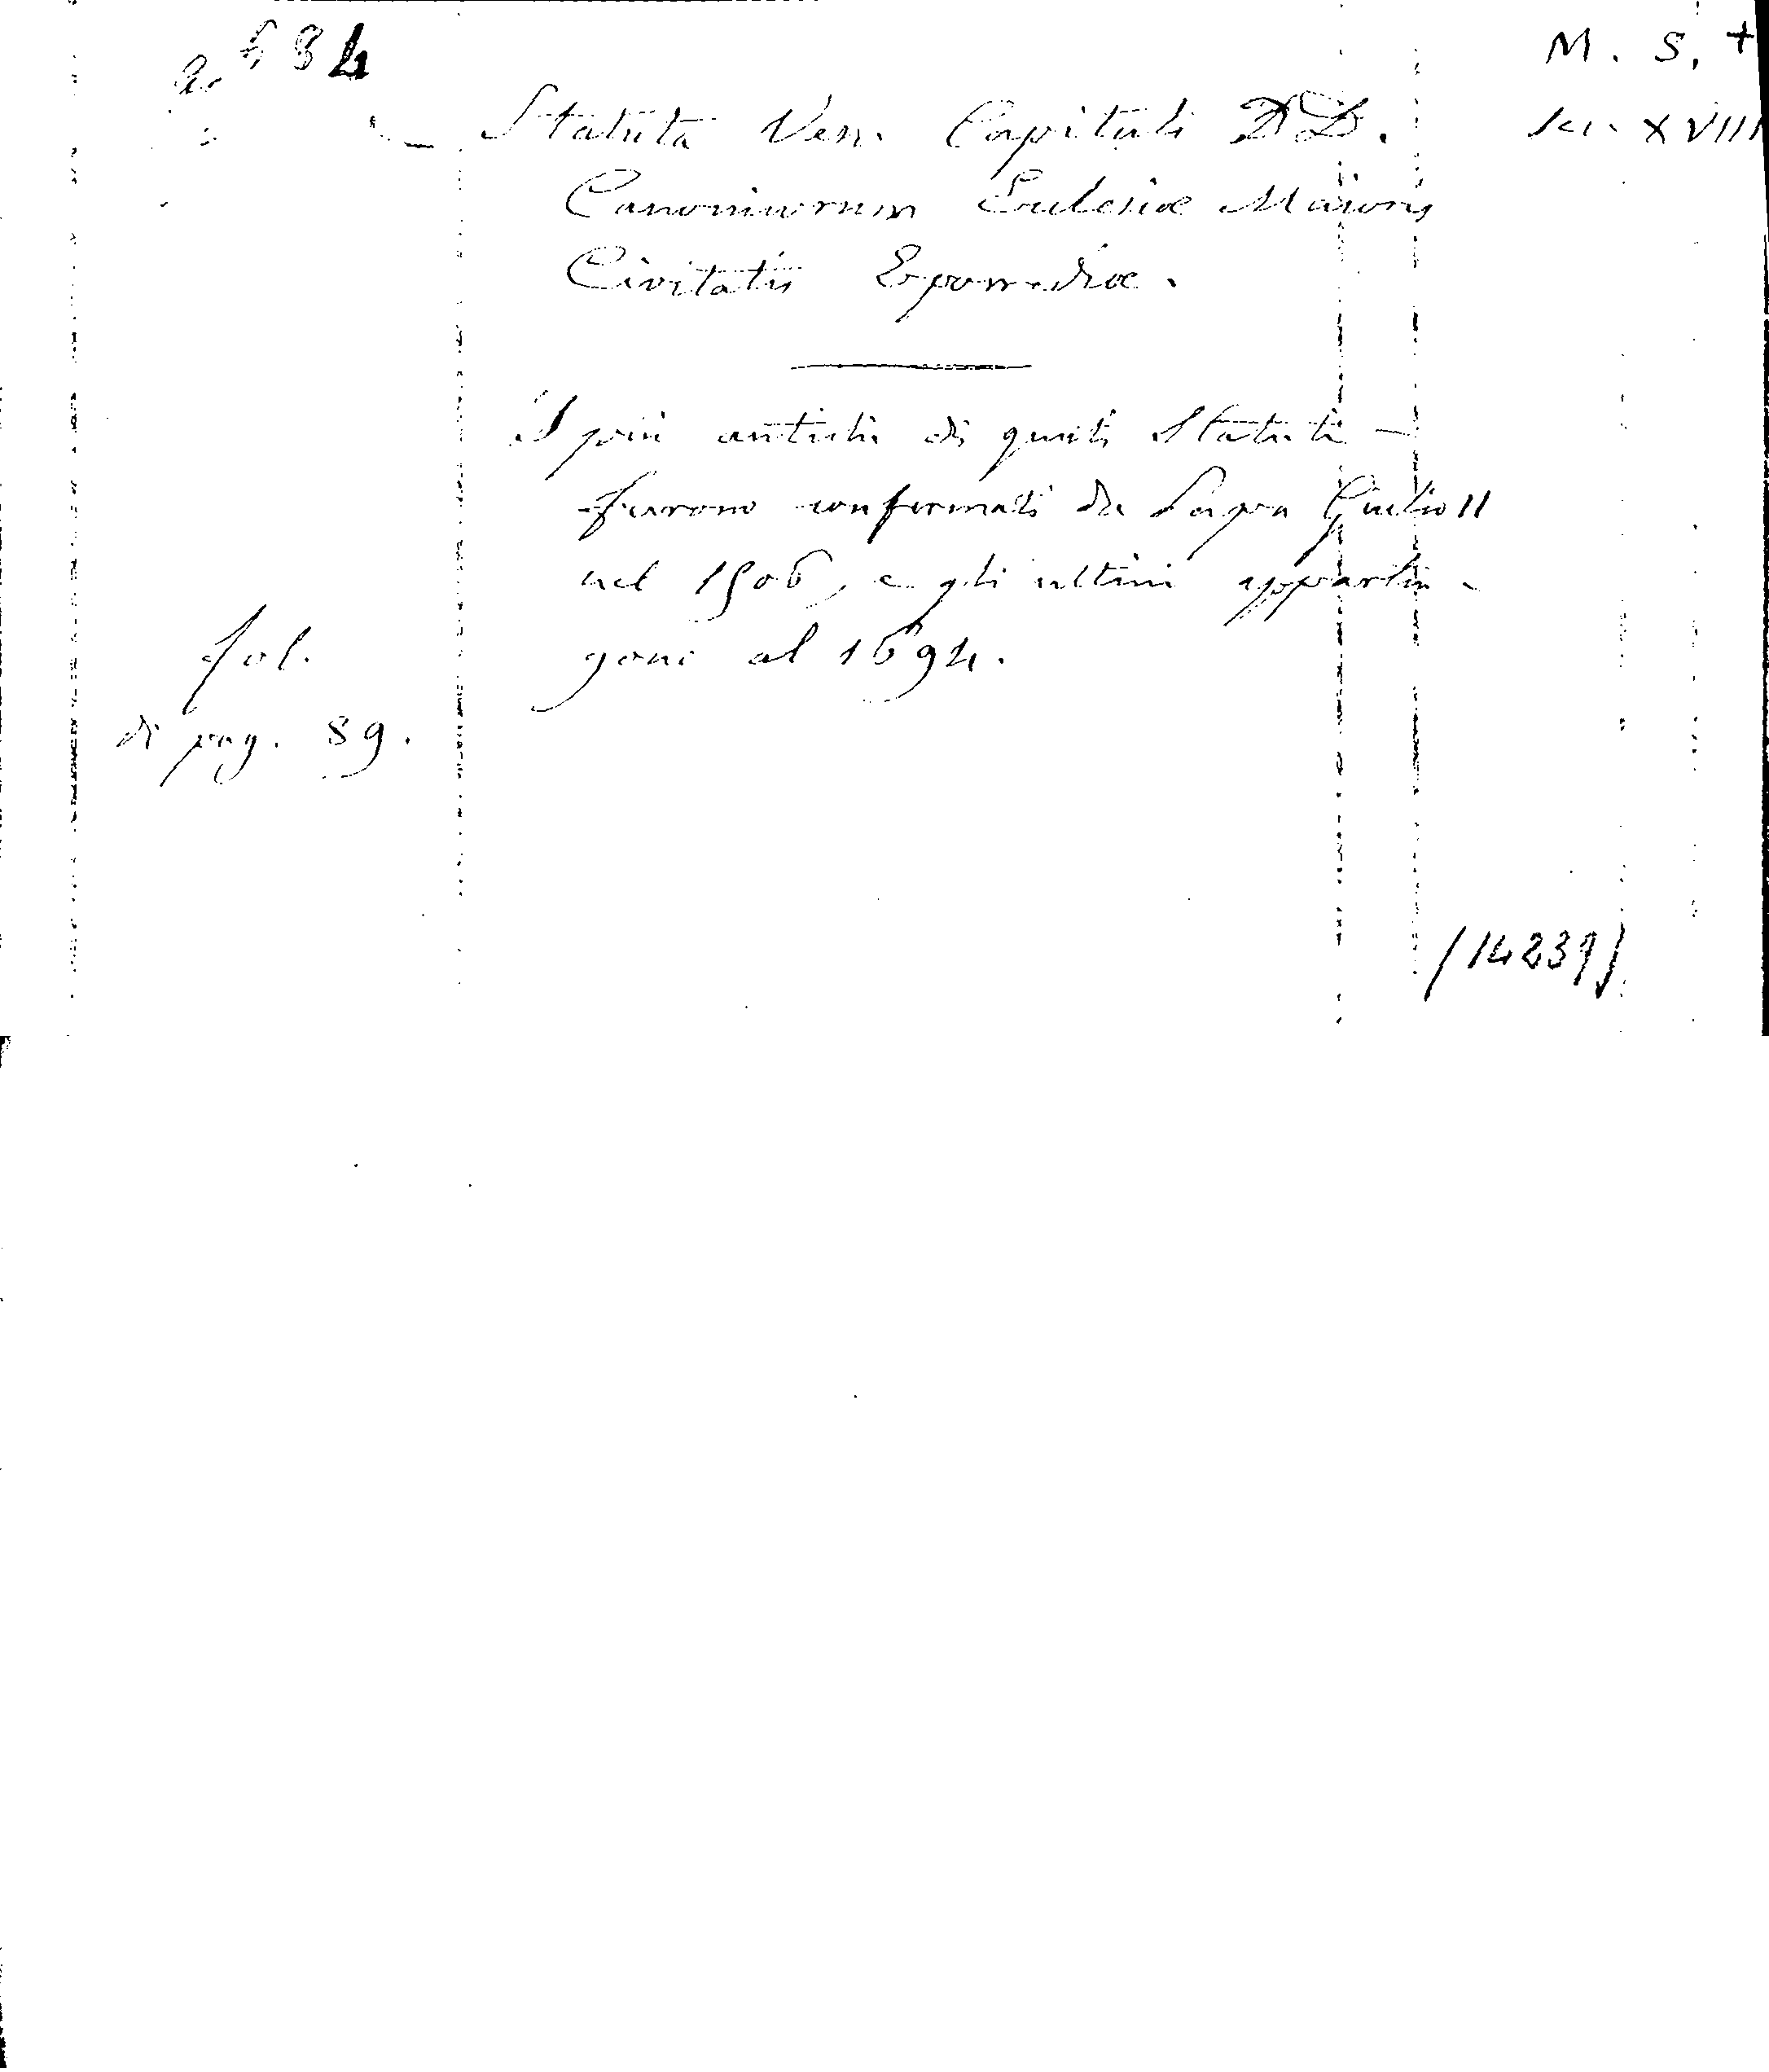 584
M. S. +
Statuta Ven. Capituli DD.
sec. XVIII
Canonicorum Ecclesiæ Maioris
Civitatis Eporediæ.
I più antichi di questi Statuti
furono confermati da Papa Giulio II
nel 1506, e gli ultimi apparten-
gono al 1694.
fol.
di pag. 89.
(14239)